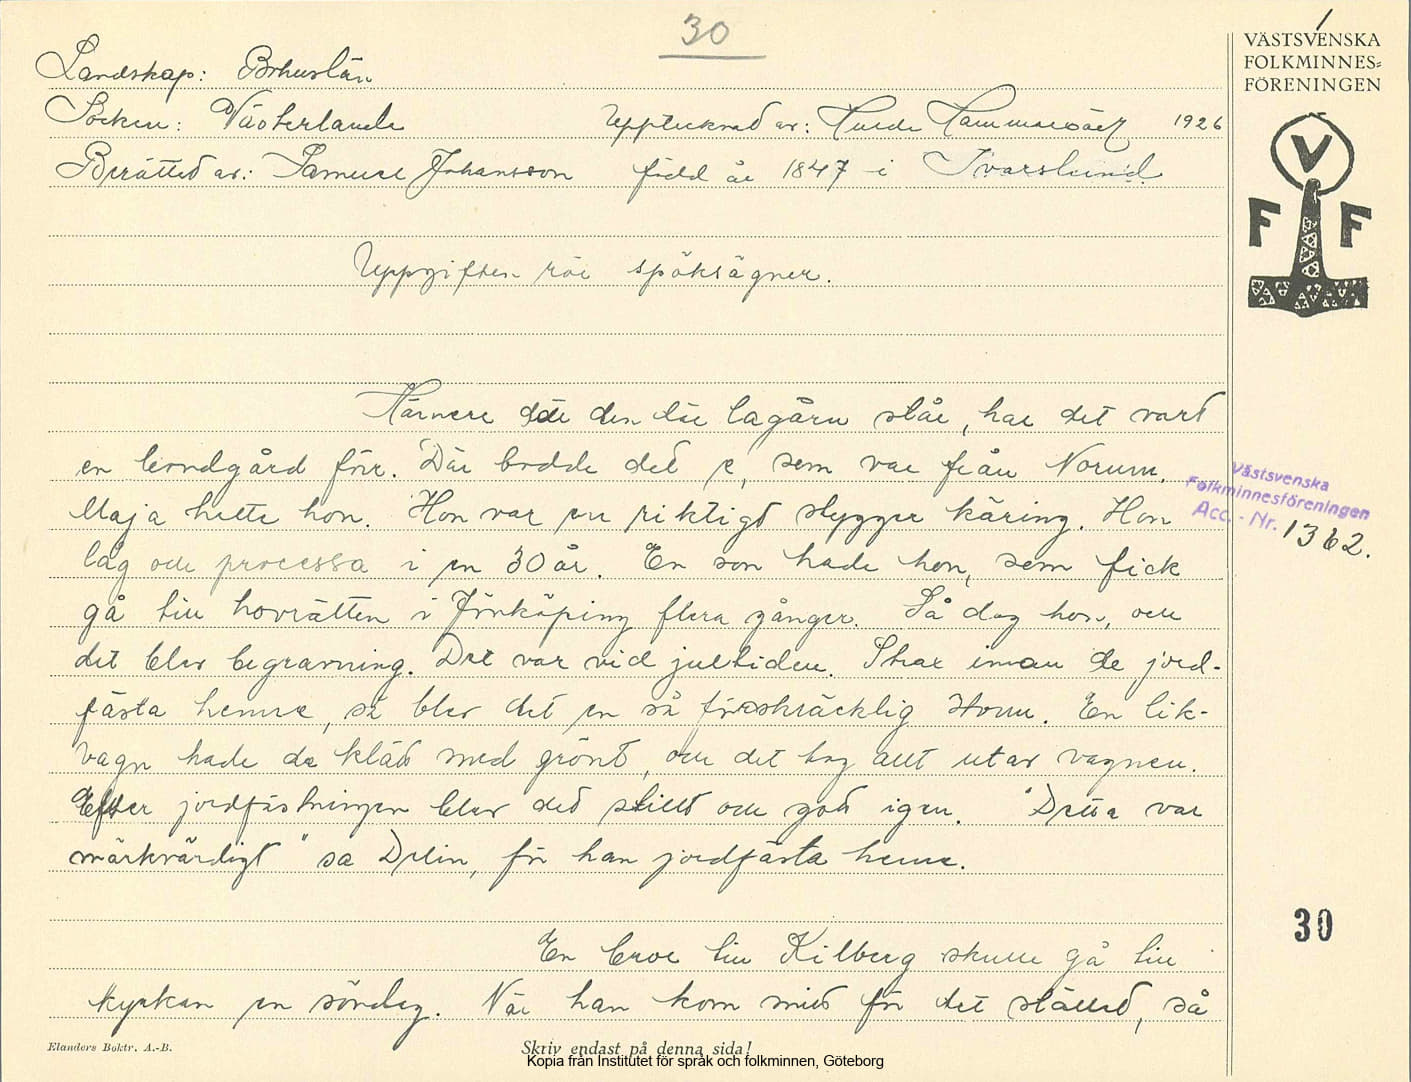 30
Landskap: Bohuslän
Socken: Västerlanda
Upptecknad av: Hulda Hammarbäck 1926
Berättad av: Samuel Johansson född år 1847 i Ivarslund.
VÄSTSVENSKA
FOLKMINNES=
FÖRENINGEN
V
F F
Uppgiften rör spöksägner.
Närmre där den där lagårn står, har det vart
en bondgård förr. Där bodde det e, som var från Norum.
Maja hette hon. Hon var en riktigt stygger käring. Hon
låg och processa i en 30 år. En son hade hon, som fick
gå till hovrätten i Jönköping flera gånger. Så dog hon, och
det blev begravning. Det var vid jultiden. Strax innan de jord-
fästa henne, så blev det en så förskräcklig storm. En lik-
vagn hade de klätt med grönt, och det tog allt utav vagnen.
Efter jordfästningen blev det stillt och gott igen. "Detta var
märkvärdigt" sa Delin, för han jordfästa henne.
Västsvenska
Folkminnesföreningen
Acc. - Nr. 1362.
En bror till Kilberg skulle gå till
kyrkan en söndag. När han kom mitt för det stället, så
30
Elanders Boktr. A.-B.
Skriv endast på denna sida!
Kopia från Institutet för språk och folkminnen, Göteborg